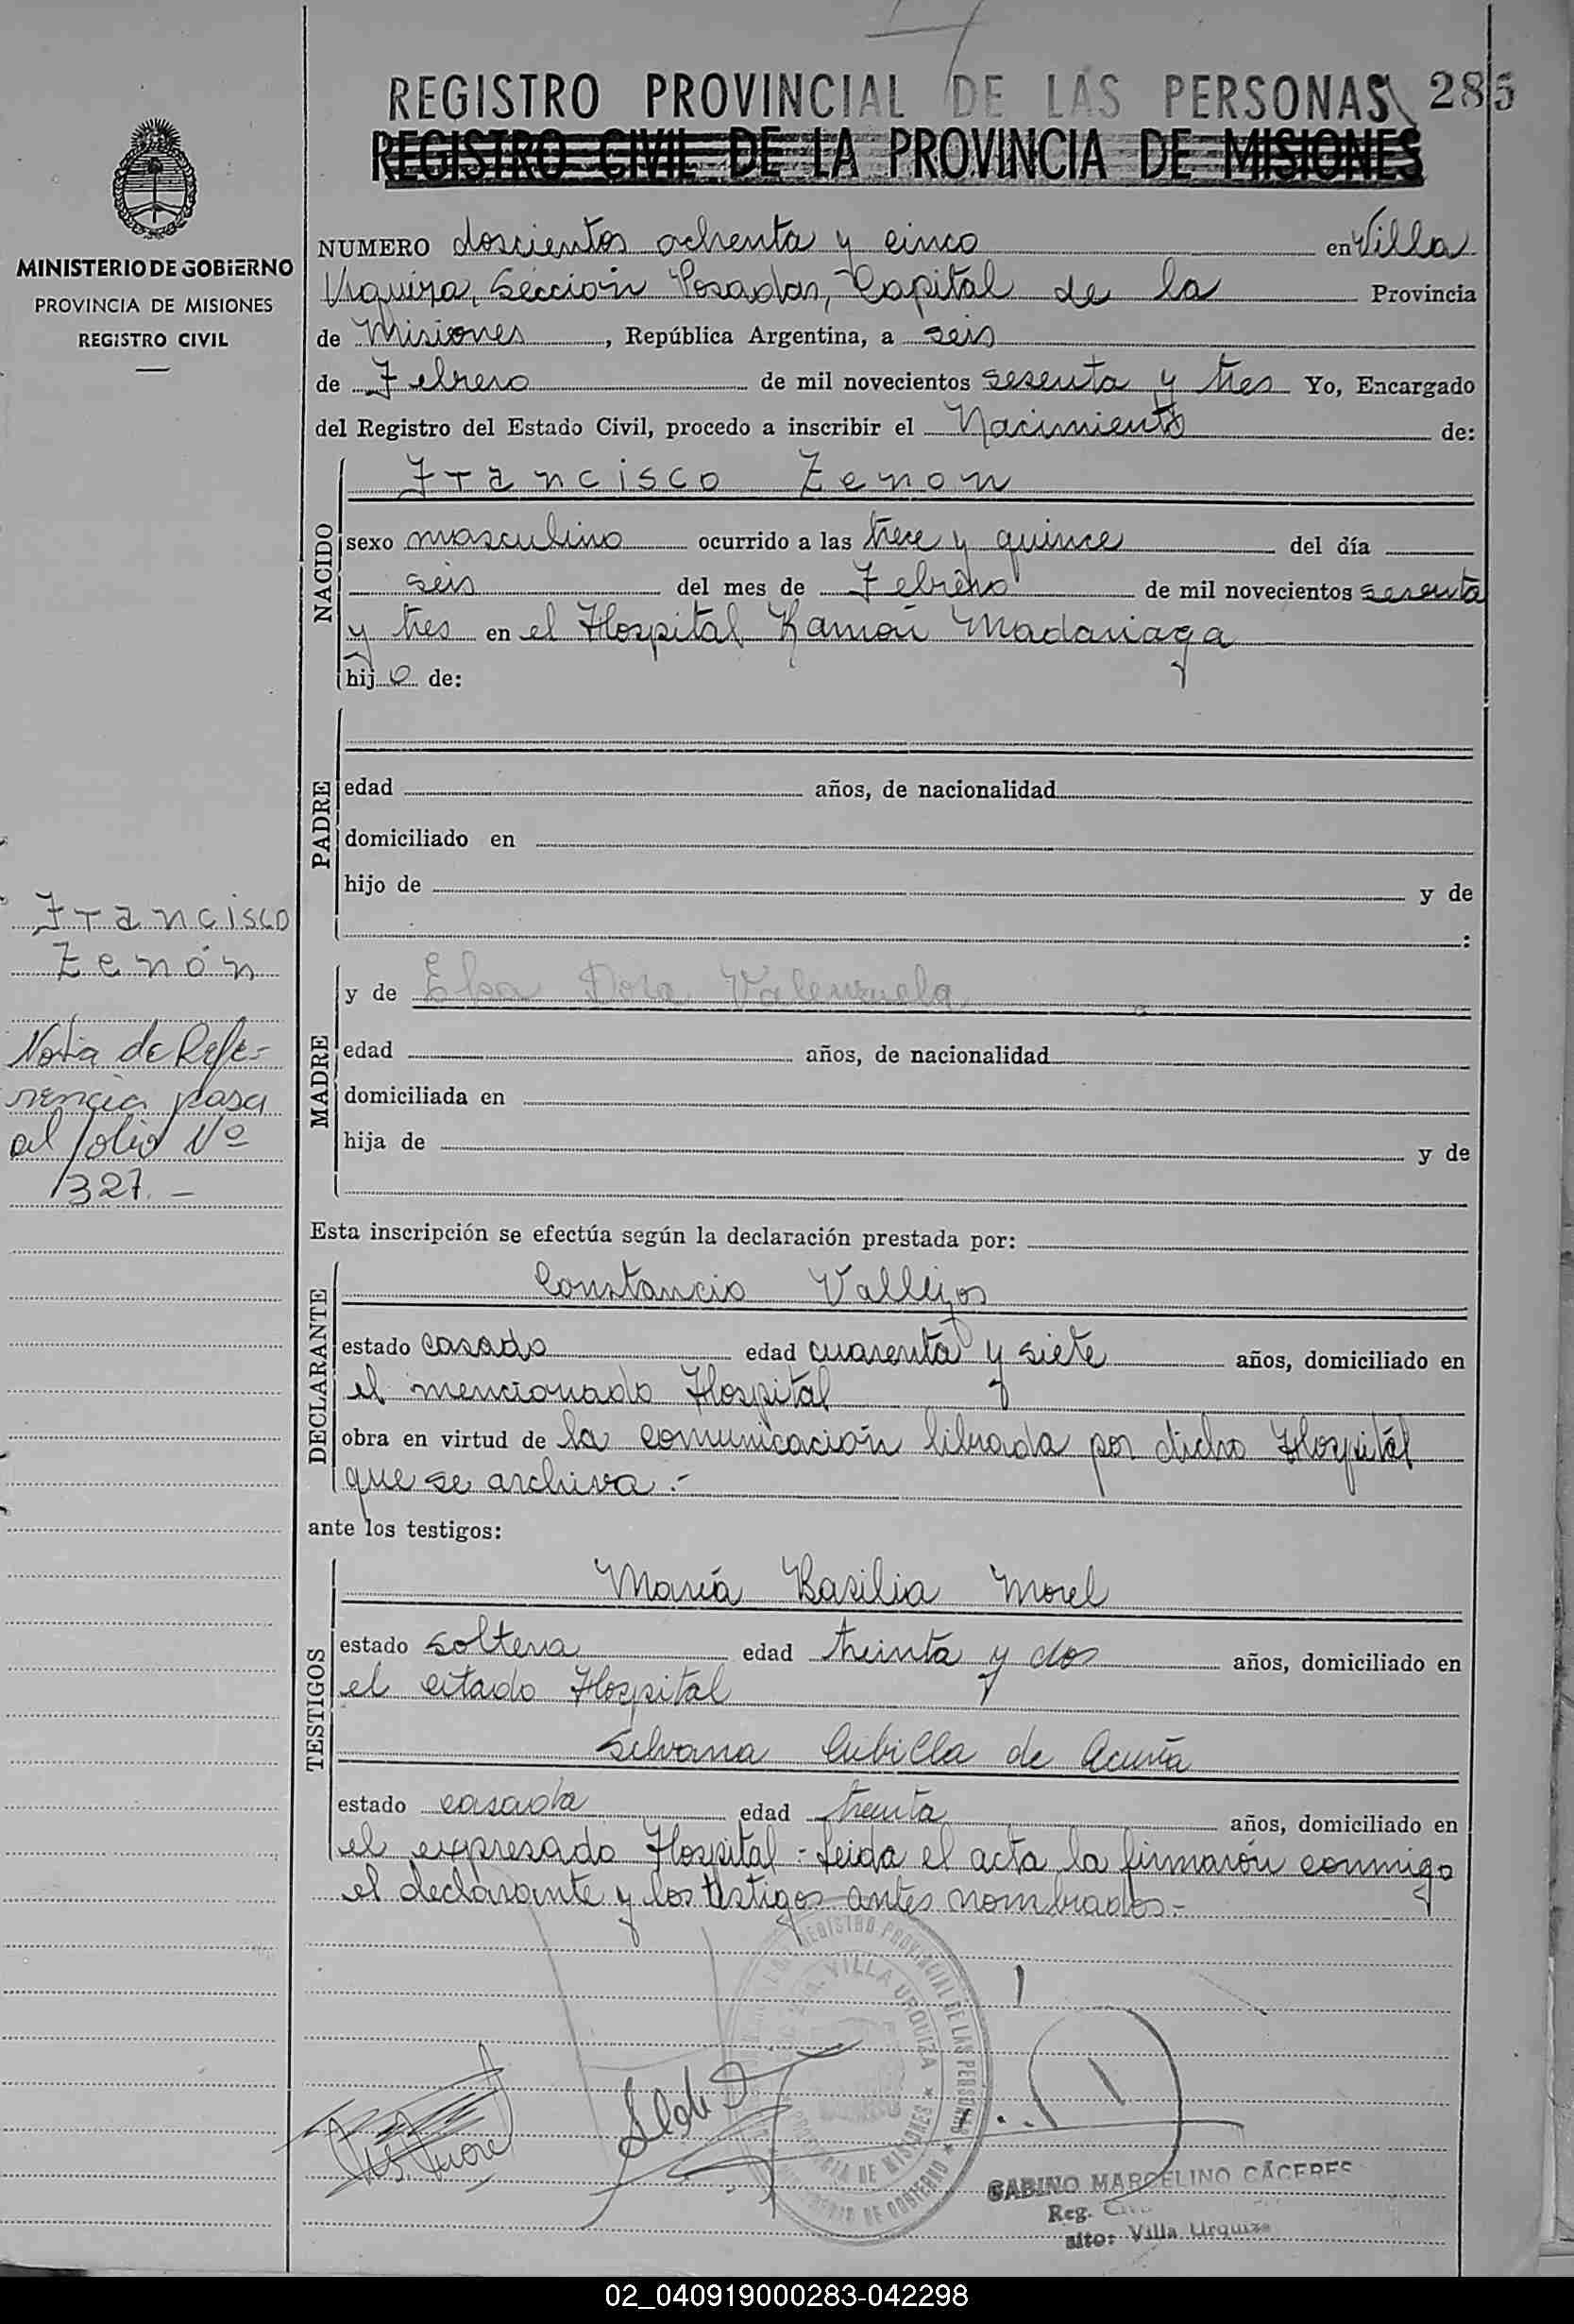 REGISTRO PROVINCIAL DE LAS PERSONAS 285
REGISTRO CIVIL DE LA PROVINCIA DE MISIONES
MINISTERIO DE GOBIERNO
PROVINCIA DE MISIONES
REGISTRO CIVIL
NUMERO doscientos ochenta y cinco en Villa
Urquiza, Sección Posadas, Capital de la Provincia
de Misiones, República Argentina, a seis
de Febrero de mil novecientos sesenta y tres Yo, Encargado
del Registro del Estado Civil, procedo a inscribir el Nacimiento de:
NACIDO
Francisco Zenon
sexo masculino ocurrido a las trece y quince del día
seis del mes de Febrero de mil novecientos sesenta
y tres en el Hospital Ramón Madariaga
hijo de:
PADRE
edad años, de nacionalidad
domiciliado en
hijo de y de
:
Francisco
Zenón
Nota de Refe-
rencia pasa
al folio Nº
327.-
MADRE
y de Elsa Dora Valenzuela
edad años, de nacionalidad
domiciliada en
hija de y de
Esta inscripción se efectúa según la declaración prestada por:
DECLARANTE
Constancio Vallejos
estado casado edad cuarenta y siete años, domiciliado en
el mencionado Hospital
obra en virtud de la comunicación librada por dicho Hospital
que se archiva.-
ante los testigos:
TESTIGOS
María Basilia Morel
estado soltera edad treinta y dos años, domiciliado en
el citado Hospital
Silvana Cubilla de Acuña
estado casada edad treinta años, domiciliado en
el expresado Hospital - Leida el acta la firmaron conmigo
el declarante y los testigos antes nombrados.-
REGISTRO PROVINCIAL DE LAS PERSONAS
VILLA URQUIZA
PROVINCIA DE MISIONES
MINISTERIO DE GOBIERNO
GABINO MARCELINO CÁCERES
Reg.
Villa Urquiza
02_040919000283-042298